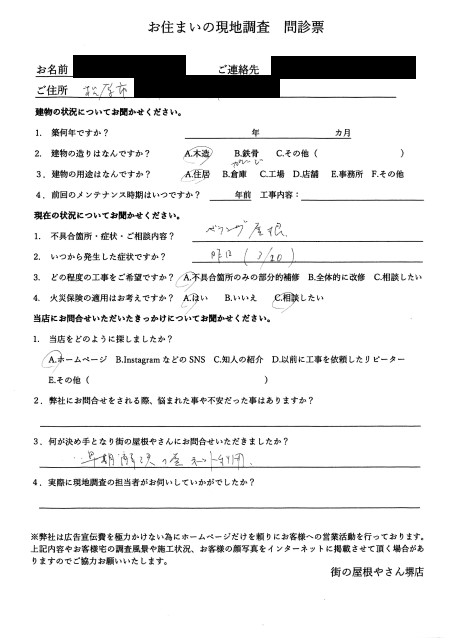 お住まいの現地調査 問診票
お名前 ご連絡先
ご住所 松原市
建物の状況についてお聞かせください。
1. 築何年ですか? 年 カ月
2. 建物の造りはなんですか? A.木造 B.鉄骨 C.その他( )
3.建物の用途はなんですか? A.住居 B.倉庫 C.工場 D.店舗 E.事務所 F.その他
4.前回のメンテナンス時期はいつですか? 年前 工事内容:
現在の状況についてお聞かせください。
1. 不具合箇所・症状・ご相談内容? ベランダ屋根
2. いつから発生した症状ですか? 昨日(3/20)
3. どの程度の工事をご希望ですか? A.不具合箇所のみの部分的補修 B.全体的に改修 C.相談したい
4. 火災保険の適用はお考えですか? A.はい B.いいえ C.相談したい
当店にお問合せいただいたきっかけについてお聞かせください。
1. 当店をどのように探しましたか?
A.ホームページ B.Instagram などの SNS C.知人の紹介 D.以前に工事を依頼したリピーター
E.その他( )
2.弊社にお問合せをされる際、悩まれた事や不安だった事はありますか?
3.何が決め手となり街の屋根やさんにお問合せいただきましたか?
早期 ネット利用
4.実際に現地調査の担当者がお伺していかがでしたか?
※弊社は広告宣伝費を極力かけない為にホームページだけを頼りにお客様への営業活動を行っております。
上記内容やお客様宅の調査風景や施工状況、お客様の顔写真をインターネットに掲載させて頂く場合があ
りますのでご協力お願いいたします。
街の屋根やさん堺店